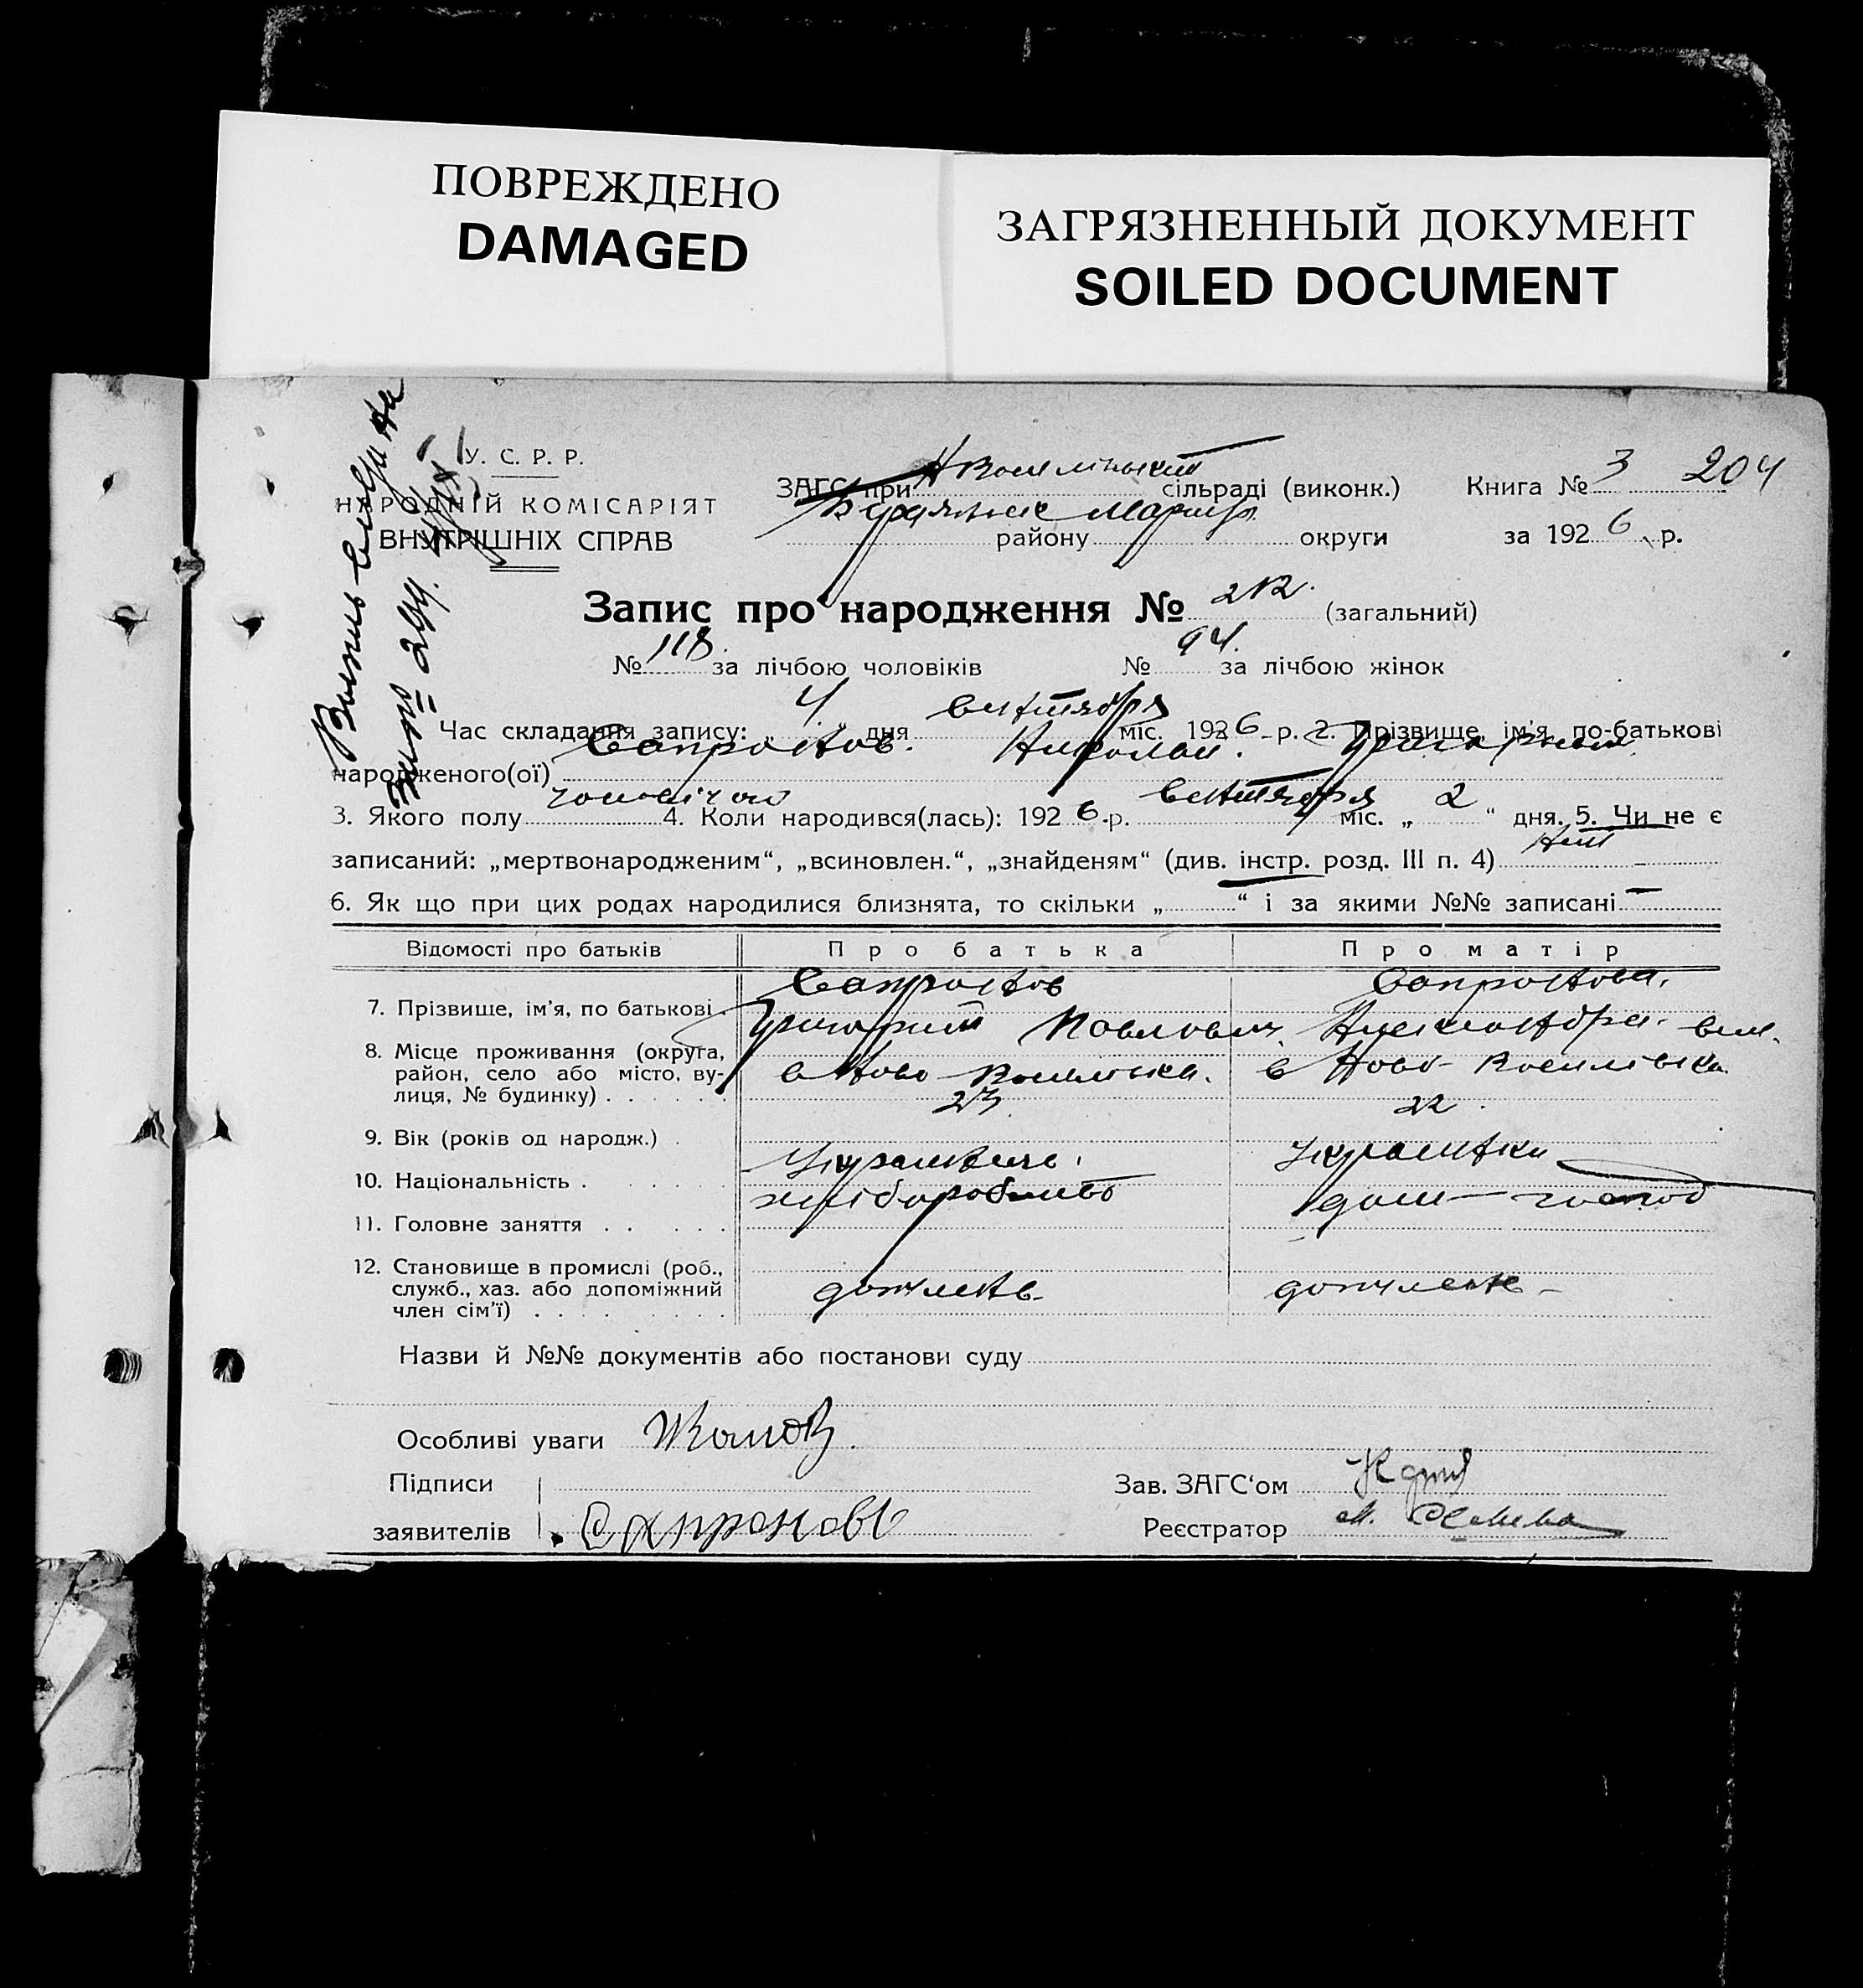 ПОВРЕЖДЕНО
DAMAGED
ЗАГРЯЗНЕННЫЙ ДОКУМЕНТ
SOILED DOCUMENT
У. С. Р. Р.
НАРОДНІЙ КОМІСАРІЯТ
ВНУТРІШНІХ СПРАВ
ЗАГС при сільраді (виконк.) Книга № 3 204
району округи за 1926 р.
Запис про народження № 212. (загальний)
№ 118. за лічбою чоловіків № 94. за лічбою жінок
Час складання запису: „ 4 “ дня сентября міс. 1926 р. 2. Прізвище, ім'я, по-батькові
народженого(ої) Сапронов. Николай.
3. Якого полу чоловічого 4. Коли народився(лась): 1926.р. сентября міс. „ 2 “ дня. 5. Чи не є
записаний: „мертвонародженим“, „всиновлен.“, „знайденям“ (див. інстр. розд. III п. 4) нет
6. Як що при цих родах народилися близнята, то скільки „ “ і за якими №№ записані —
Відомості про батьків Про батька Про матір
7. Прізвище, ім'я, по батькові . Сапронов Григорий Павлович. Сапронова. Александра
8. Місце проживання (округа,
район, село або місто, ву-
лиця, № будинку) . . . . . . с Ново Василівка. с Ново-Василівка.
9. Вік (років од народж.) . 23. 22.
10. Національність . . . . . . Українець. Українка
11. Головне заняття . . . . . . хліборобство дом—господ
12. Становище в промислі (роб.,
служб., хаз. або допоміжний
член сім'ї) . . . . . . допчлен с допчлен с
Назви й №№ документів або постанови суду
Особливі уваги
Підписи
заявителів
Зав. ЗАГС‘ом
Реєстратор